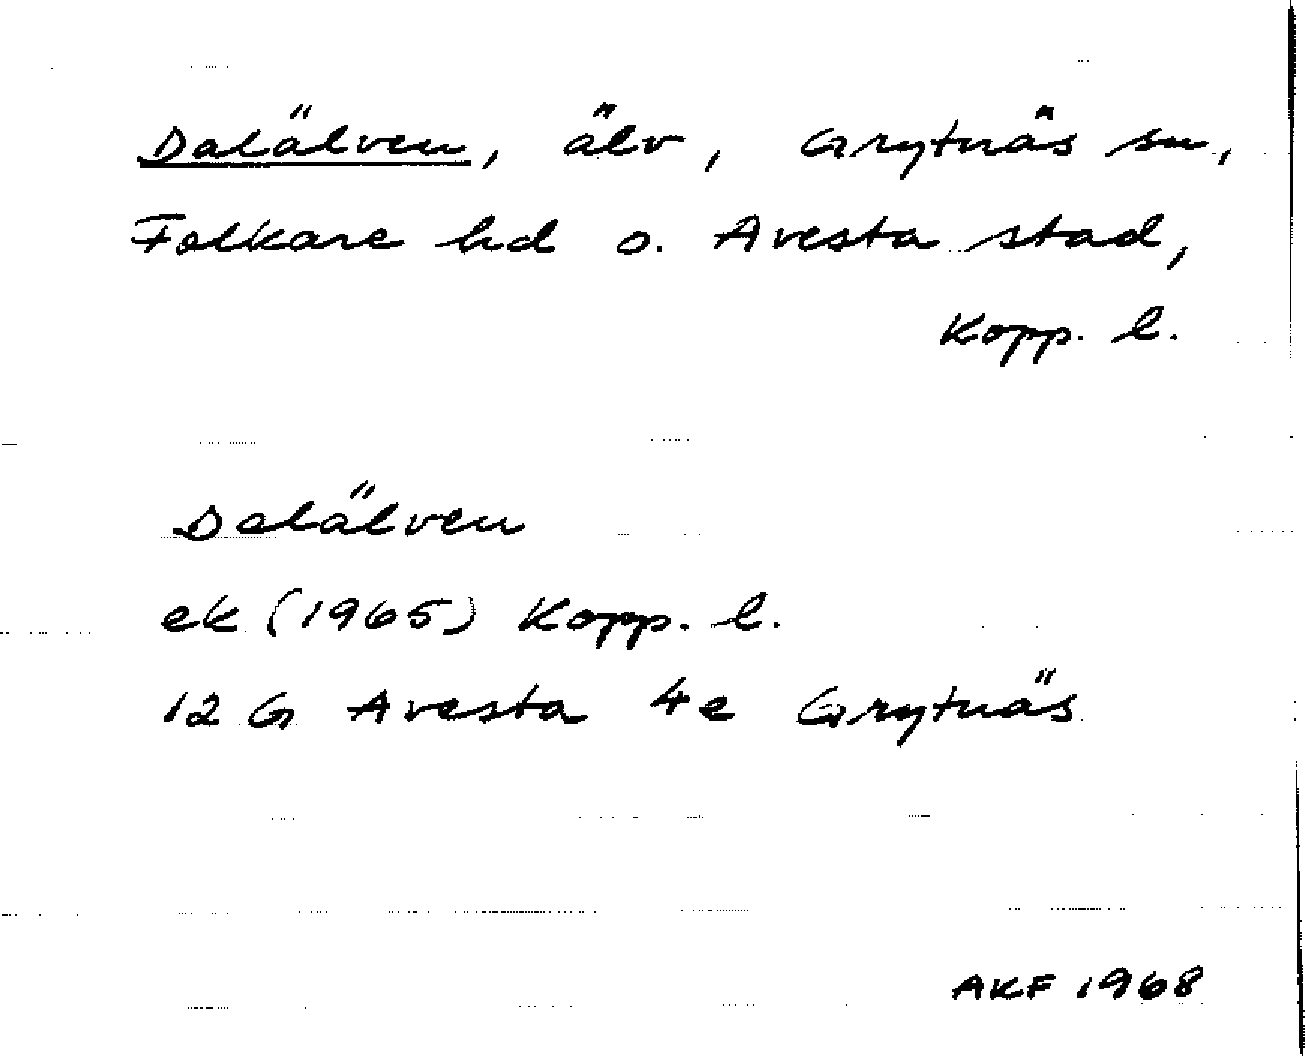 Dalälven, älv, Grytnäs sn,
Folkare hd o. Avesta stad,
Kopp. l.
Dalälven
ek (1965) Kopp. l.
12 G Avesta 4e Grytnäs
AKF 1968